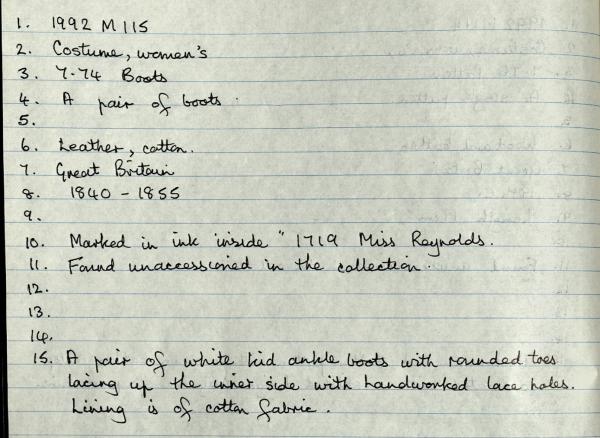 1. 1992 M 115
2. Costume, women's
3. 7.74 Boots
4. A pair of boots.
5.
6. Leather, cotton.
7. Great Britain
8. 1840 - 1855
9.
10. Marked in ink inside "1719 Miss Reynolds.
11. Found unaccessioned in the collection.
12.
13.
14.
15. A pair of white kid ankle boots with rounded toes
lacing up the inner side with handworked lace holes.
Lining is of cotton fabric.